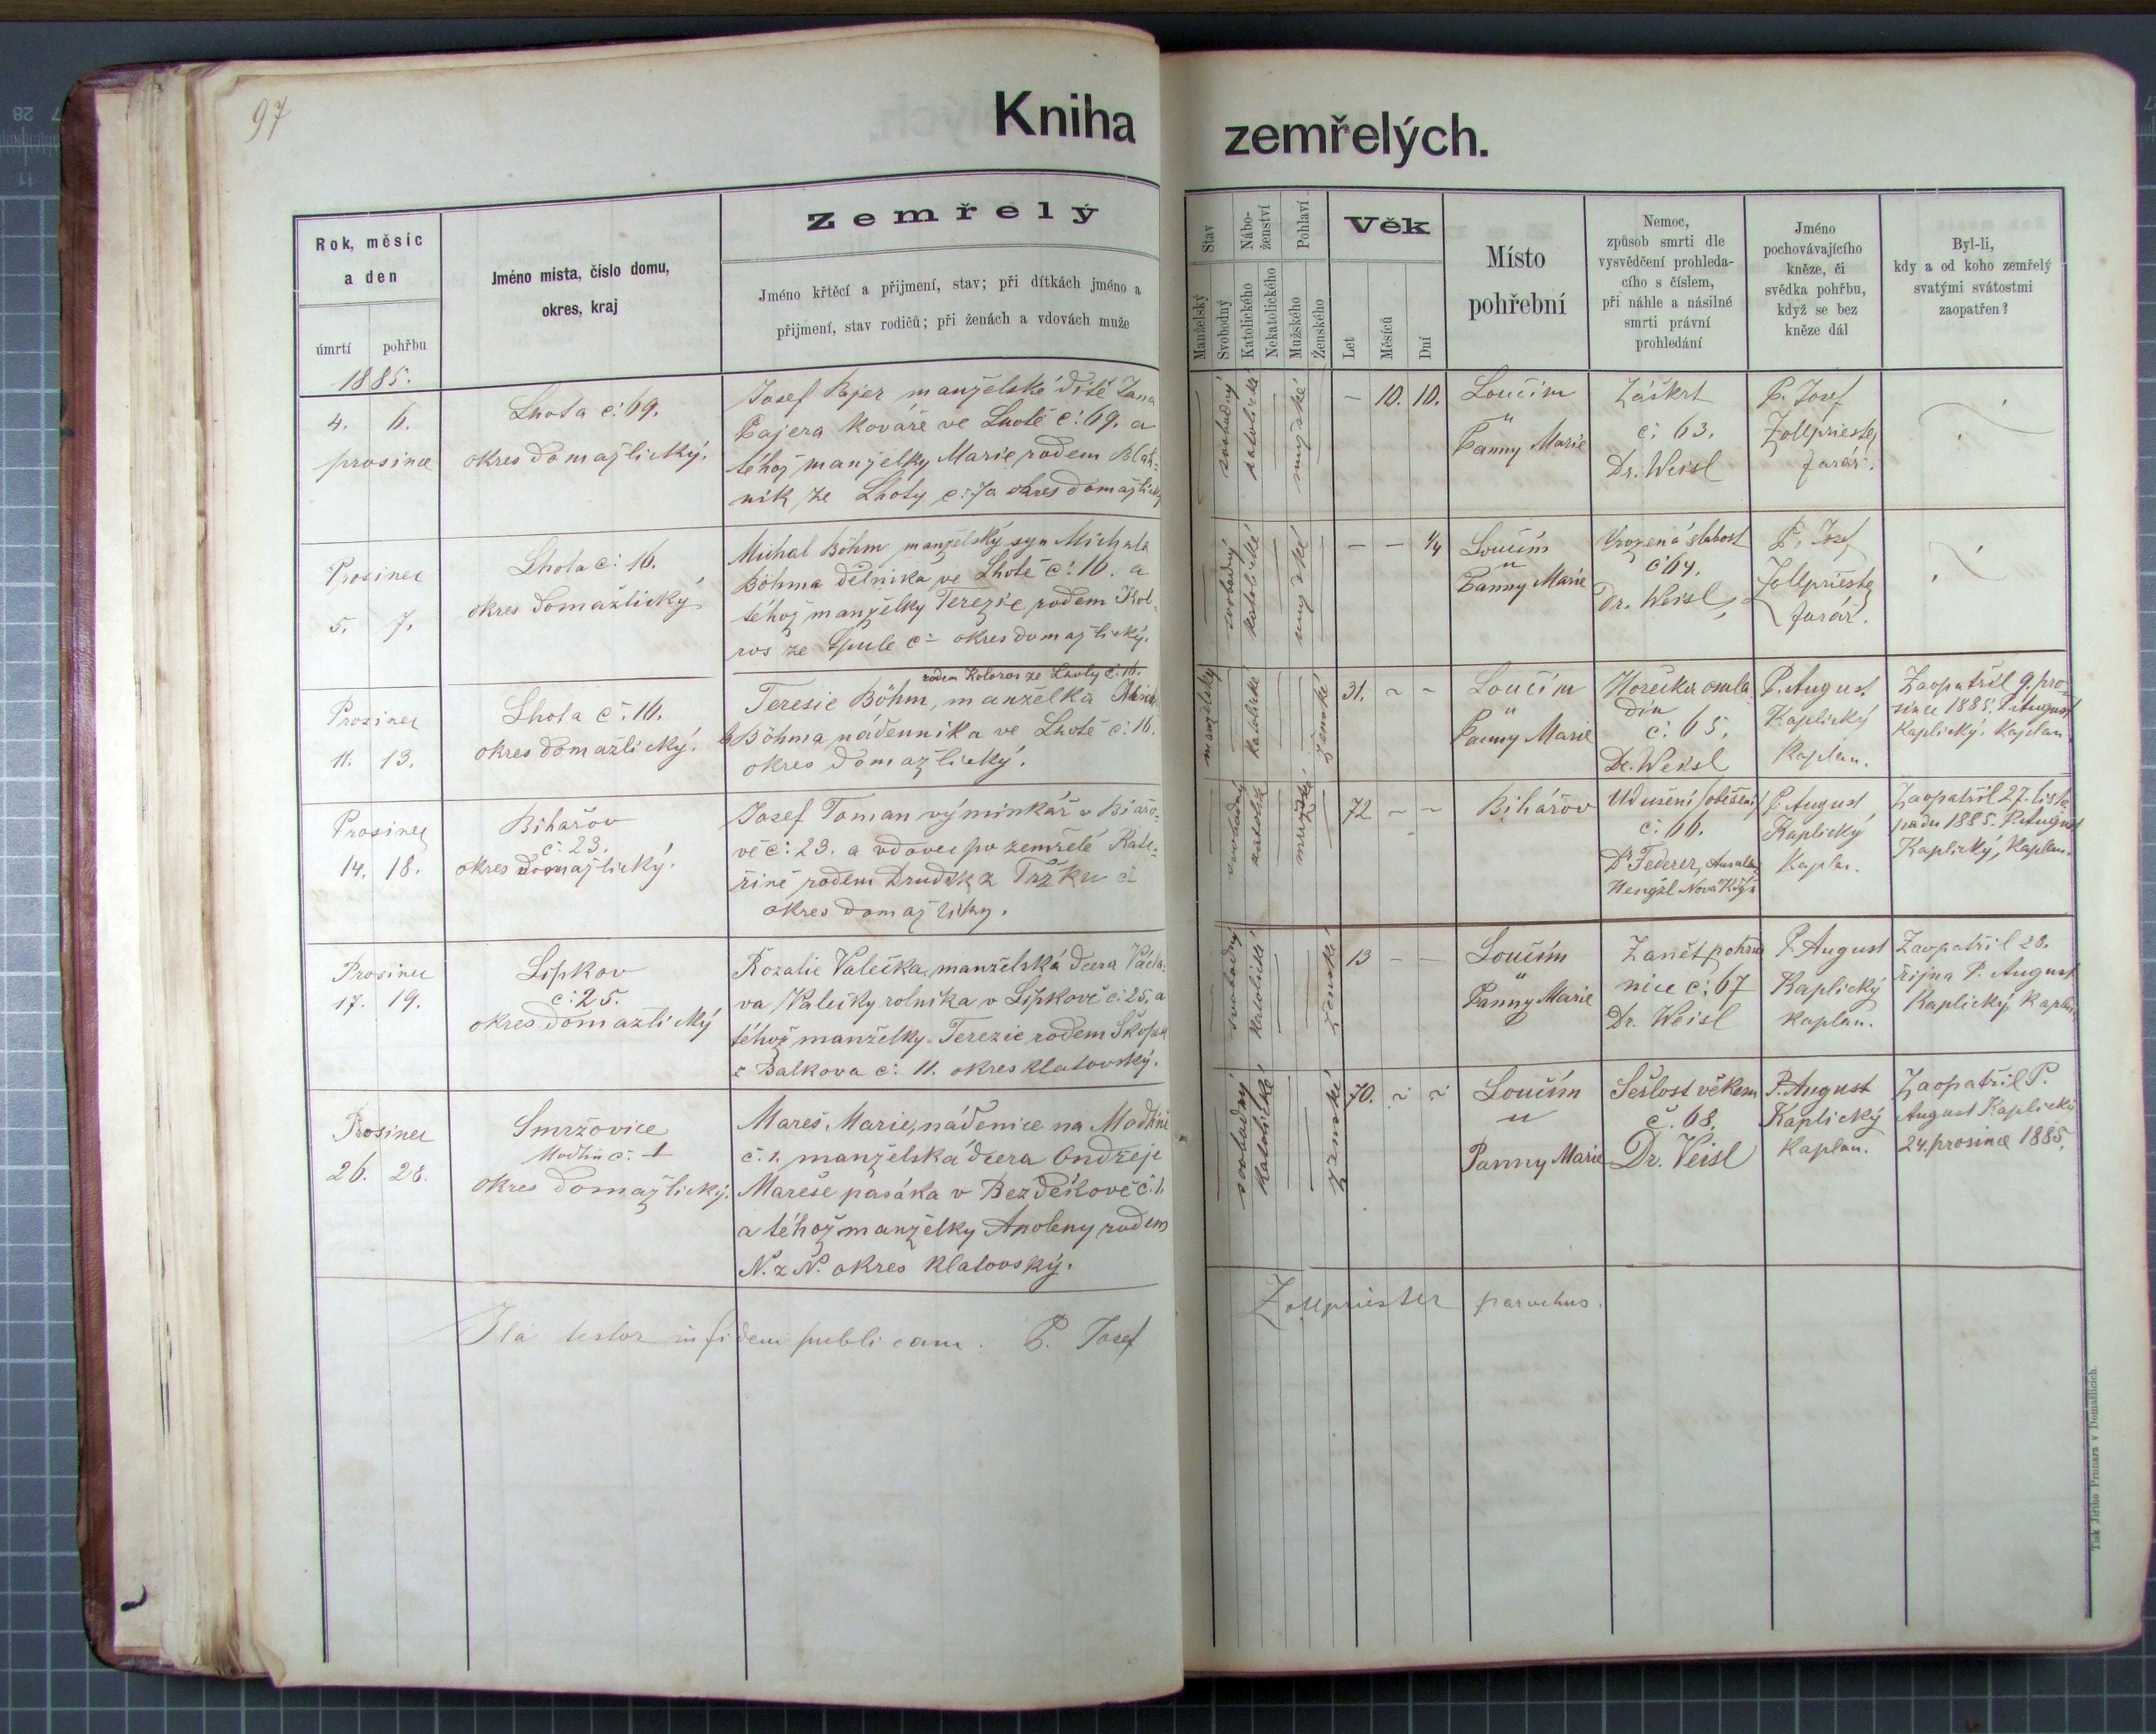 97
Kniha zemřelých.
Rok, měsíc
a den
úmrtí pohřbu
Jméno místa, číslo domu,
okres, kraj
Zemřelý
Jméno křtěcí a přijmení, stav; při dítkách jméno a
přijmení, stav rodičů; při ženách a vdovách muže
Stav
Manželský
Svobodný
Nábo-
ženství
Katolického
Nekatolického
Pohlaví
Mužského
Ženského
Věk
Let
Měsíců
Dní
Místo
pohřební
Nemoc,
způsob smrti dle
vysvědčení prohleda-
cího s číslem,
při náhle a násilné
smrti právní
prohledání
Jméno
pochovávajícího
kněze, či
svědka pohřbu,
když se bez
kněze dál
Byl-li,
kdy a od koho zemřelý
svatými svátostmi
zaopatřen?
1885.
4. 6.
prosince
Lhota č: 69.
okres domažlický.
Josef Pajer manželské dítě Jana
Pajera kováře ve Lhotě č: 69. a
téhož manželky Marie rodem Blah-
nik, ze Lhoty č: 70 okres domažlický
svobodný
katolické
mužské
- 10. 10.
Loučim
"
Panny Marie
Záškrt
č: 63.
Dr. Weisl
P. Josef
Zollpriester
farář.
Prosinec
5. 7.
Lhota č: 16.
okres domažlický
Michal Böhm manželský syn Michala
Böhma dělníka ve Lhotě č: 16. a
téhož manželky Terezie rodem Kol-
ros ze Spule č - okres domažlický.
svobodný
katolické
mužské
- - 1/4
Loučim
"
Panny Marie
Vrozená slabost
č: 64.
Dr. Weisl
P. Josef
Zollprieste
farář.
Prosinec
11. 13.
Lhota č: 16.
okres domažlický.
rodem Koloros ze Lhoty č: 16.
Teresie Böhm, manželka
Böhma nádenníka ve Lhotě č: 16.
okres domažlický.
manželský
katolické
ženské
31. ~ ~
Loučim
"
Panny Marie
Horečka omla
din
č: 65.
Dr. Weisl
P. August
Kaplický
Kaplan.
Zaopatřil 9. pro-
since 1885. P. August
Kaplický, Kaplan
Prosinec
14. 18.
Bihařov
č: 23.
okres domažlický.
Josef Toman výminkář v Biařo-
vě č: 23. a vdovec po zemřelé Kate-
řině rodem Drudík z Tržku č -
okres domažlicky.
svobodný
katolick
mužské
72. ~ ~
Bihářov
Udušení /oběšení/
č: 66.
Dr Federer,
Hengzl Nová Kdyň
P. August
Kaplický
Kaplan.
Zaopatřil 27. listo-
padu 1885. P. August
Kaplický, Kaplan.
Prosinec
17. 19.
Lipkov
č: 25.
okres domažlický
Rozalie Valečka, manželská dcera Václa-
va Valečky rolníka v Lipkově č: 25. a
téhož manželky Terezie rodem Skopek
z Balkova č: 11. okres klatovský.
svobodný
katolické
ženské
13 - -
Loučim
"
Panny Marie
Zánět pohrud
nice č: 67
Dr. Weisl
P. August
Kaplický
kaplan.
Zaopatřil 28.
října P. August
Kaplický, Kaplan
Prosinec
26. 28.
Smržovice
Modlín č: 1
okres domažlický.
Mareš, Marie, nádenice na Modlíně
č: 1. manželská dcera Ondřeje
Mareše pasáka v Bezděkově č: 1.
a téhož manželky Anoleny rodem
N. z N. okres klatovský.
svobodný
katolické
ženské
70. ~ ~
Loučim
"
Panny Marie
Sešlost věkem
č. 68.
Dr. Veisl
P. August
Kaplický
Kaplan.
Zaopatřil P.
August Kaplický
24. prosince 1885.
Ita testor in fidem publicam. P. Josef Zollpriester parochus.
Tisk Jiřího Prunara v Domažlicích.